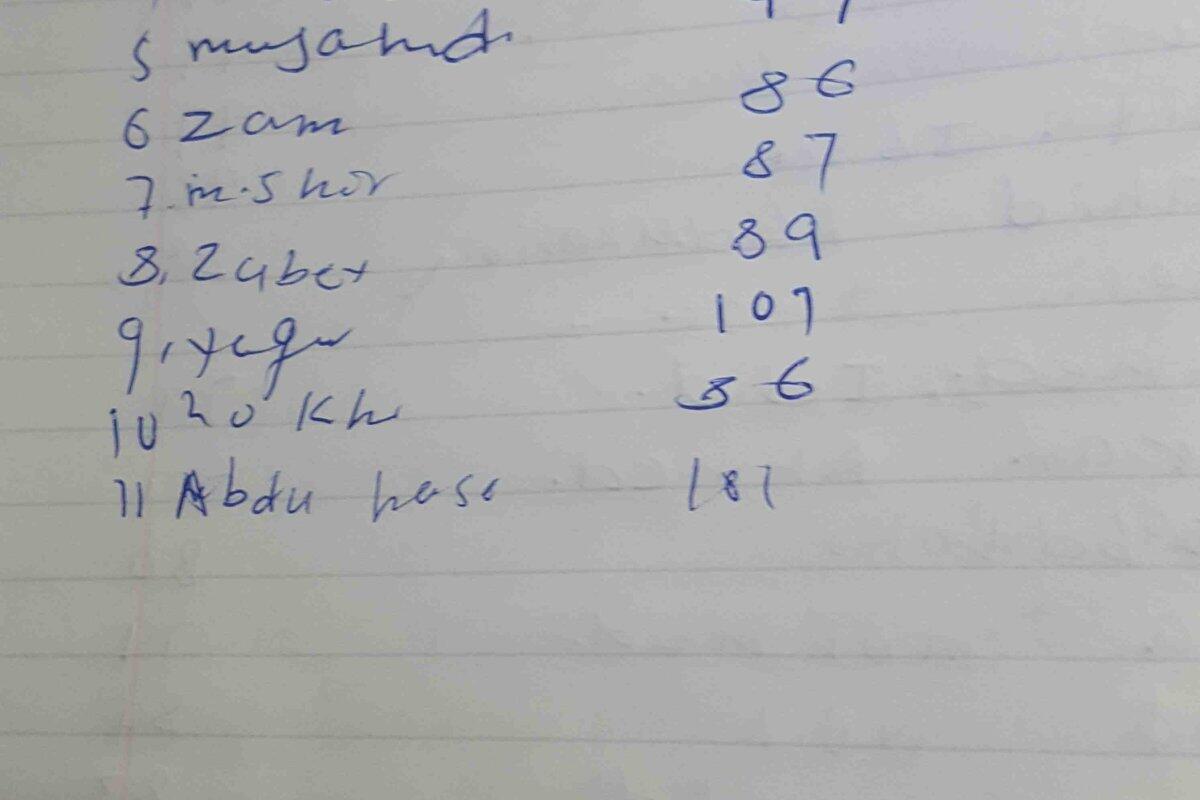 5 musahid
6 zam 86
7. m.shor 87
8, Zaber 89
9, yaqu 107
10 Kh 86
11 Abdu hase 181